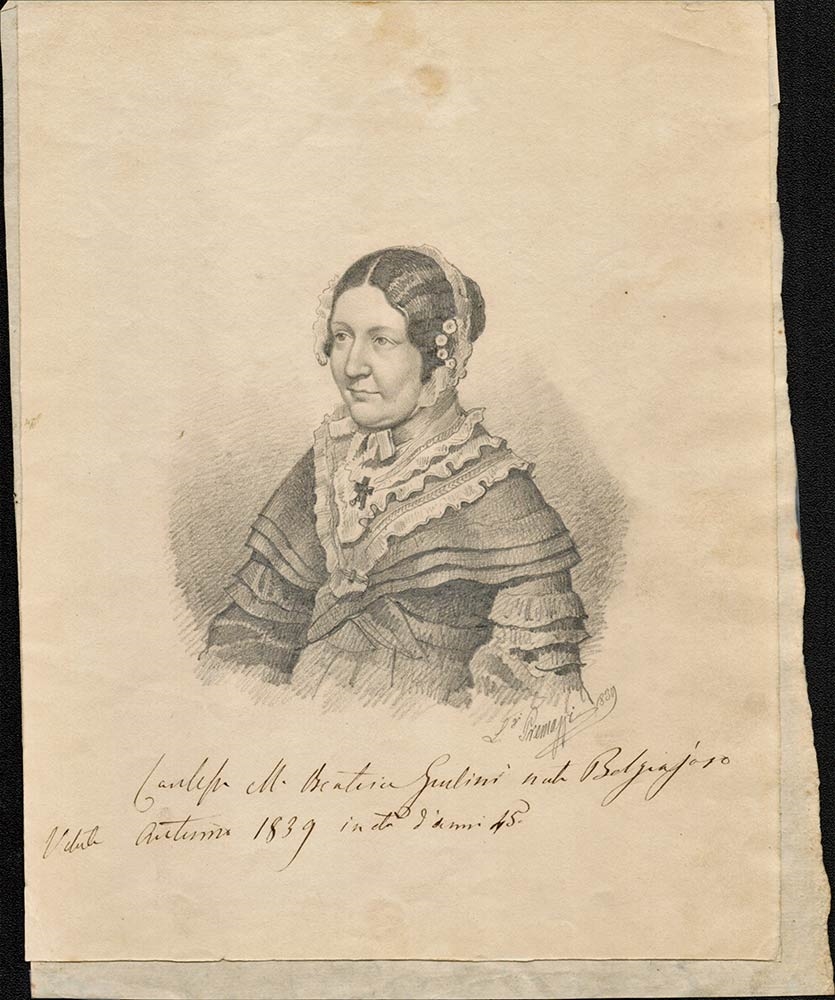 Lr. Premazzi 1839
Contessa M. Beatrice Giulini nata Belgiojoso
Autunno 1839 in età d'anni 45.